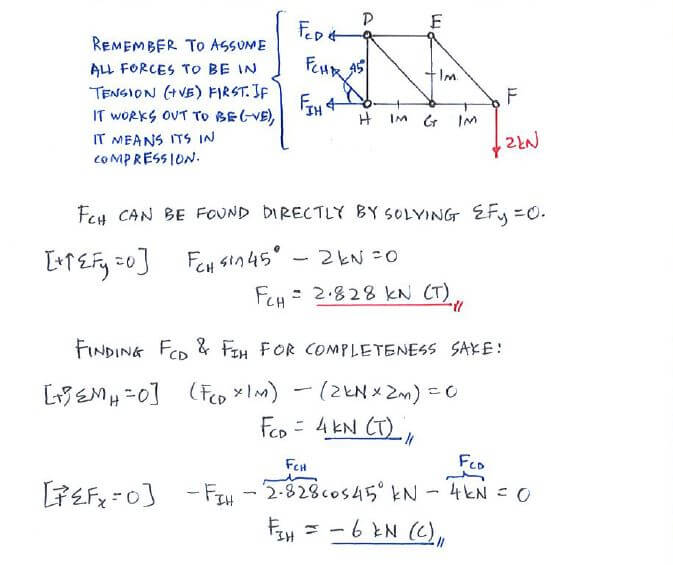 REMEMBER TO ASSUME
ALL FORCES TO BE IN
TENSION (+VE) FIRST. IF
IT WORKS OUT TO BE (-VE),
IT MEANS ITS IN
COMPRESSION.
F_CD
D
E
F_CH
45°
1M
F_IH
F
H
1M
G
1M
2kN
F_CH CAN BE FOUND DIRECTLY BY SOLVING ΣFy=0.
[+↑ΣFy=0] F_CH sin45° - 2kN=0
F_CH = 2.828 kN (T)
FINDING F_CD & F_IH FOR COMPLETENESS SAKE:
[+↺ΣM_H=0] (F_CD ×1M) - (2kN×2M)=0
F_CD = 4kN (T)
F_CH
F_CD
[→+ΣFx=0] -F_IH - 2.828cos45° kN - 4kN = 0
F_IH = -6 kN (C)